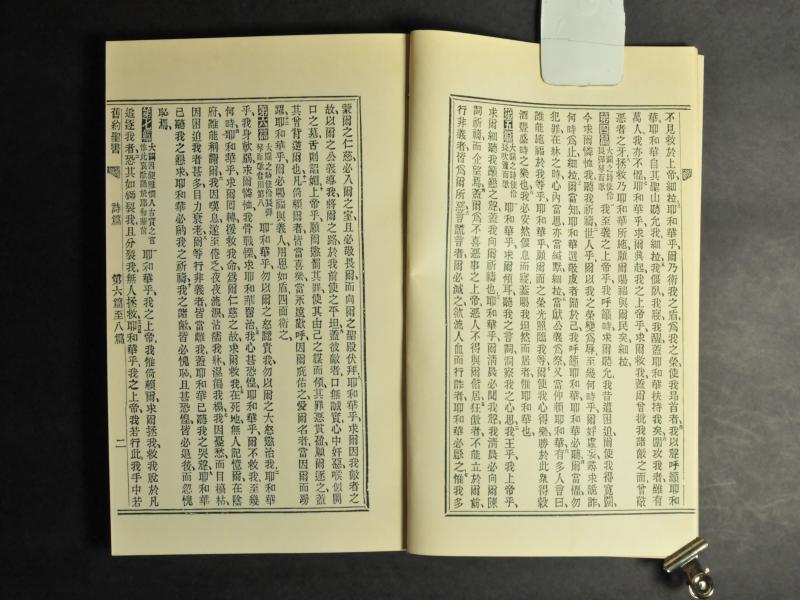 不見救於上帝細拉耶和華乎、爾乃衛我之盾、爲我之榮、使我昂首者、我以聲呼籲耶和
華、耶和華自其聖山聽允我、細拉我偃臥、我寢、我醒、蓋耶和華扶持我矣、圍攻我者雖有
萬人、我亦不懼、耶和華乎、求爾興起、我之上帝乎、求爾救我、蓋爾曾批我諸敵之面、曾敲
惡者之牙、拯救乃耶和華所施、願爾賜福與爾民矣、細拉
第四篇 大闢之詩使伶長鼓琴而歌 我至義之上帝乎、我呼籲時、求爾聽允、我昔遭困迫、爾使我得寬闊、
今求爾憐恤我、聽我祈禱、世人乎、爾以我之榮變爲辱、至幾何時乎、爾好虛妄、尋求詭詐、
何時爲止、細拉爾當知耶和華選敬虔者歸於己、我呼籲耶和華、耶和華必聽、爾當懼、勿
犯罪、在牀之時、心內當思、亦當緘默、細拉當獻公義爲祭、又當仰賴耶和華、有多人曰、
誰能施福於我等乎、耶和華乎、願爾面之榮光照臨我等、爾使我心得樂、勝於此衆得穀
酒豐盛時之樂也、我必安然偃息而寢、蓋賜我坦然而居者、惟耶和華也、
第五篇 耶和華乎、求爾傾耳、聽我之言詞、洞察我之心思、我王乎、我上帝乎、
求爾傾聽我籲懇之聲、蓋我向爾祈禱也、耶和華乎、清晨必聞我聲、我清晨必向爾陳
詞祈禱、而企望焉、蓋爾爲不喜惡事之上帝、惡人不得與爾偕居、狂傲者不能立於爾前、
行非義者皆爲爾所惡、言謊言者爾必滅之、欲流人血而行詐者、耶和華必惡之、惟我多
蒙爾之仁慈、必入爾之室、且必敬畏爾而向爾之聖殿伏拜、耶和華乎、求爾因我敵者之
故、以爾之公義導我、將爾之路於我前使之平坦、蓋彼敵者口無誠實、心中奸惡、喉似開
口之墓、舌則諂媚、上帝乎、願爾懲罰其罪、使其由己之謀而傾、其罪惡貫盈、願爾逐之、蓋
其曾背違爾也、凡倚賴爾者皆當喜樂、當永遠歡呼、因爾庇佑之、愛爾名者、當因爾而踴
躍、耶和華乎、爾必賜福與義人、用恩如盾四面衛之、
第六篇 耶和華乎、勿以爾之怒譴責我、勿以爾之大怒懲治我、耶和華
乎、我身軟弱、求爾憐恤我、我骨戰慄、求耶和華醫治我、我心甚恐惶、耶和華乎、爾不救我、至幾
何時、耶和華乎、求爾回轉、援救我命、緣爾仁慈之故、求爾救我、在死地無人記憶爾、在陰
府誰能稱謝爾、我因嘆息、遂至倦乏、夜夜流淚、沾濡我牀、濕濁我榻、我因憂愁、而目積枯、
因困迫我者甚多、目力衰老、爾等行非義者、皆當離我、蓋耶和華已聽我之哭聲、耶和華
已聽我之懇求、耶和華必納我之祈禱、我之諸敵、皆必愧恥、且甚恐惶、皆必退後、而忽愧
恥焉、
第七篇 耶和華乎、我之上帝、我惟倚賴爾、求爾拯我、救我脫於凡
追逐我者、恐其如獅裂我、且分裂我、無人拯救、耶和華乎、我之上帝、我若行此、我手中若
舊約聖書 詩篇 第六篇至八篇 二